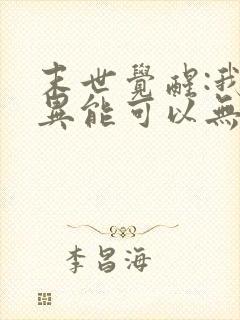 末世覺醒:我
異能可以無
李昌海